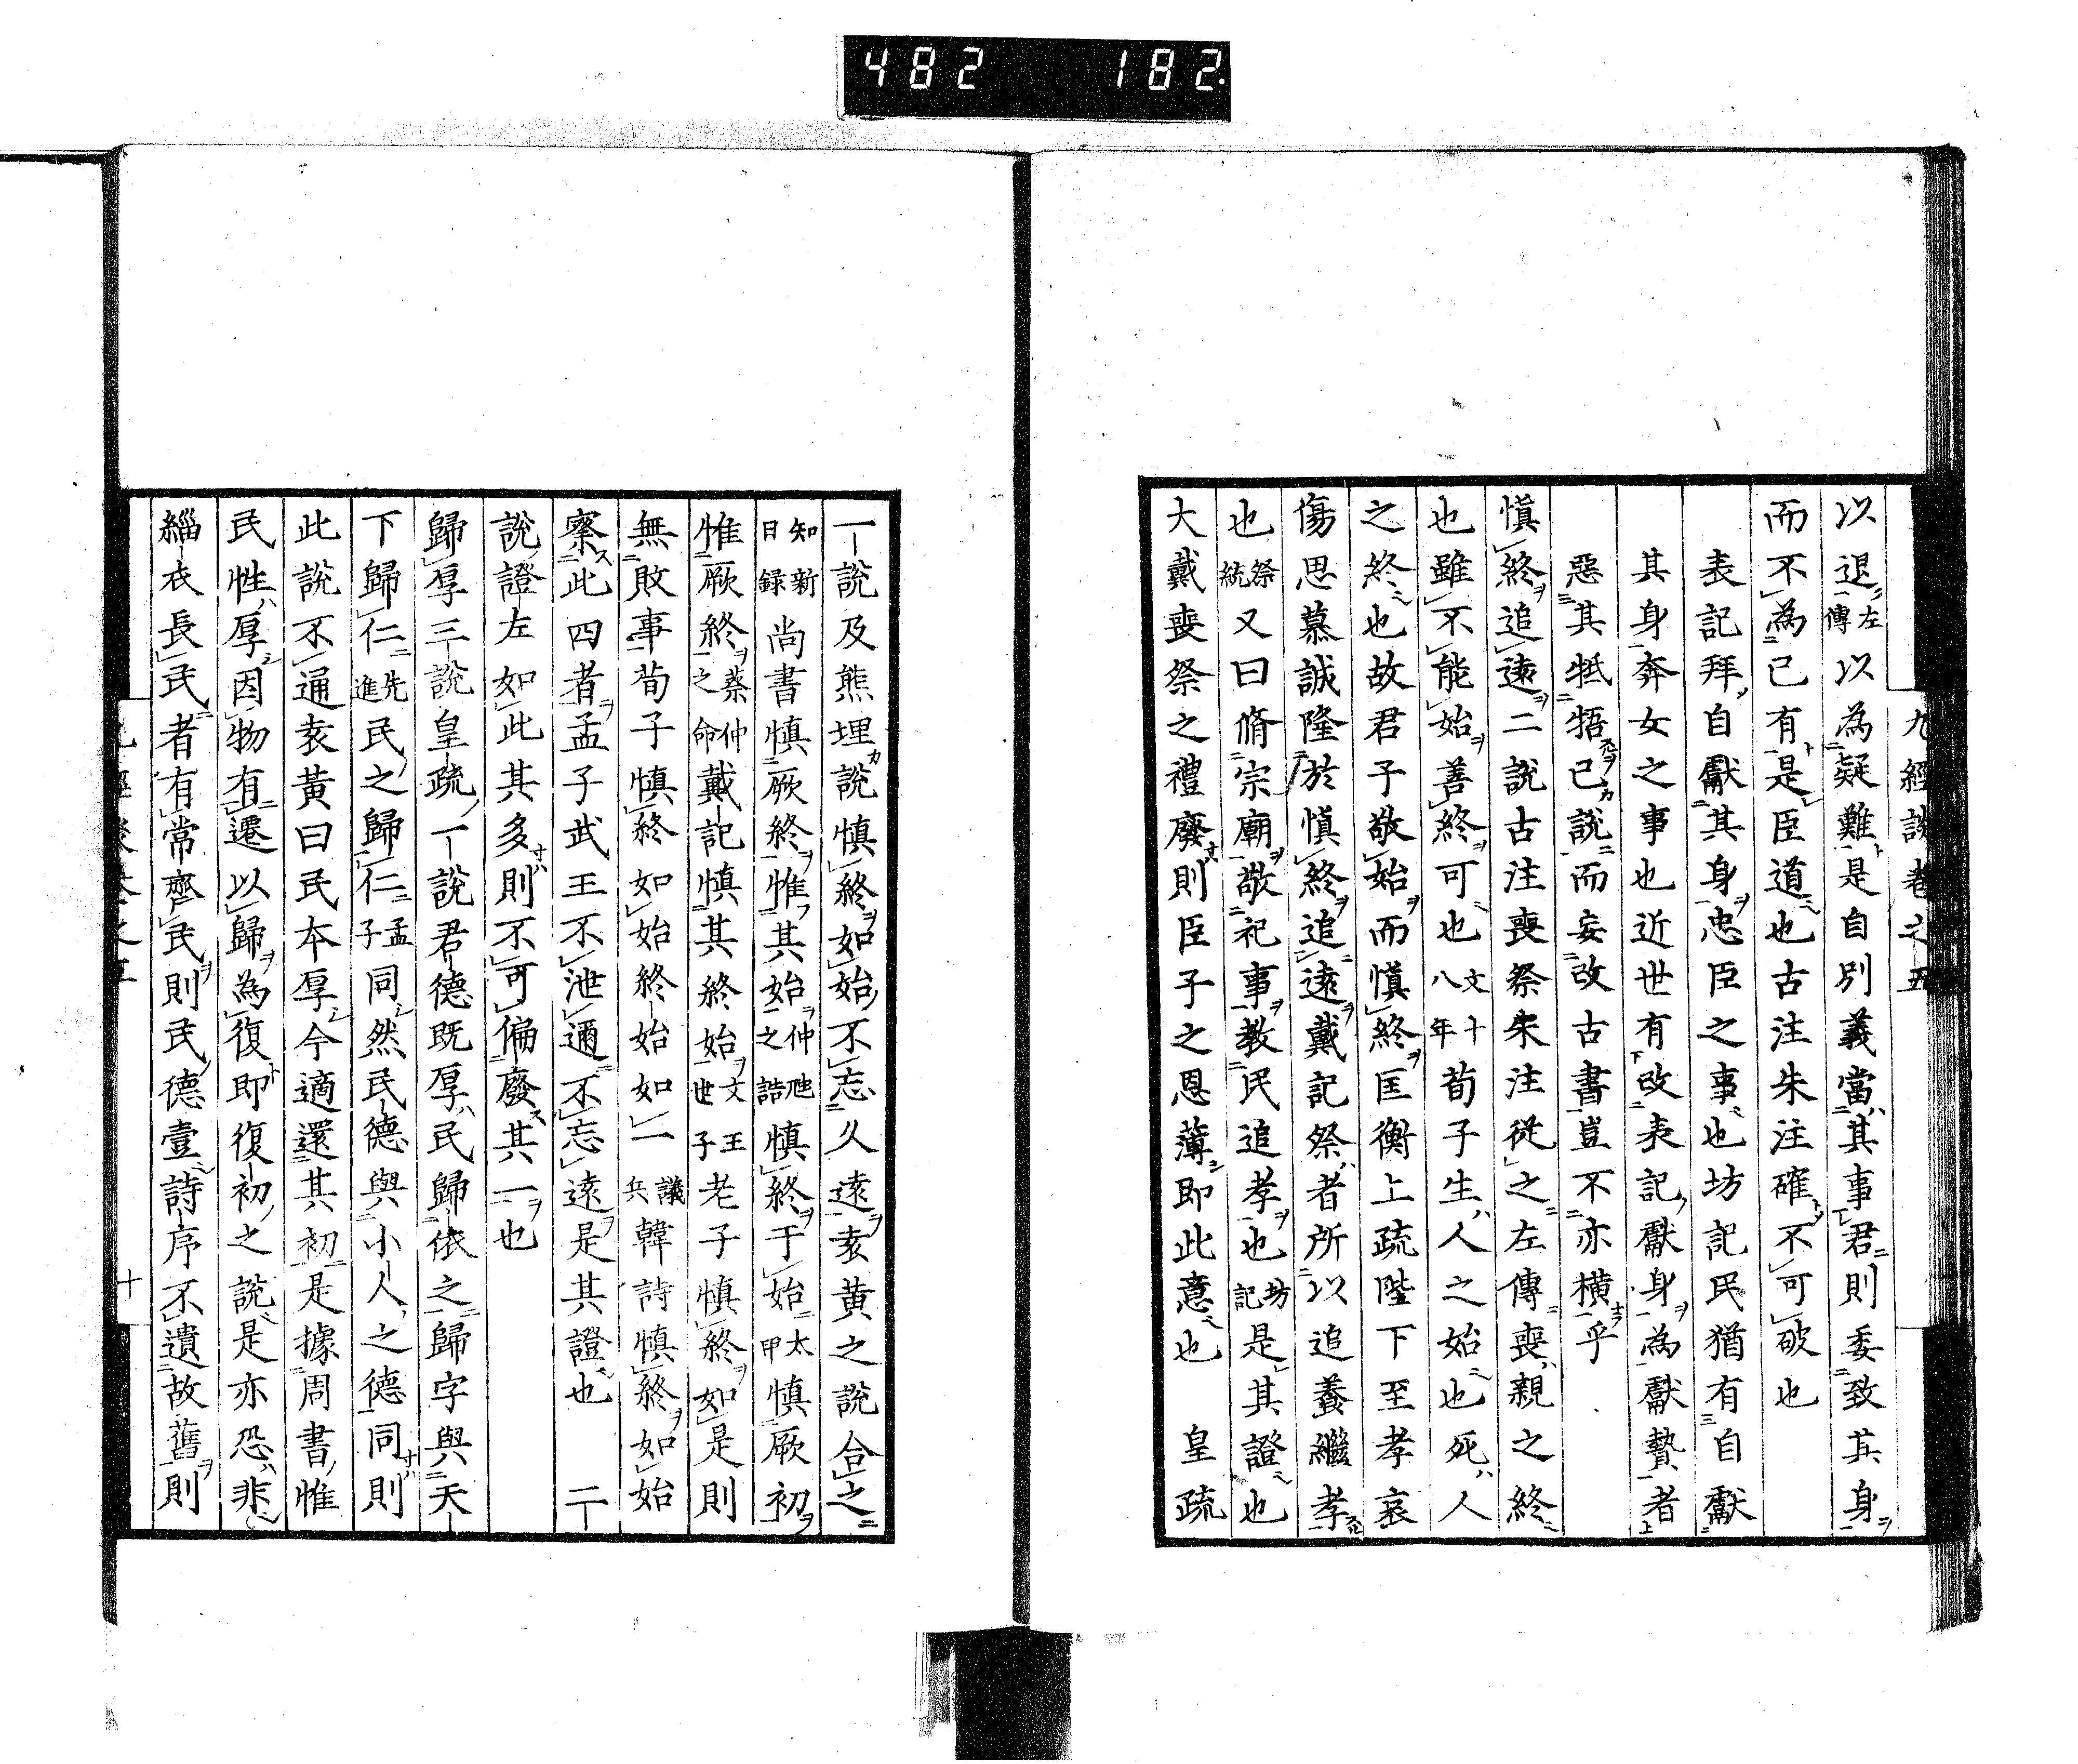 482 182
九經談卷之五
以退左傳以為疑難是自別義當其事君則委致其身
而不為已有是臣道也古注朱注確不可破也
表記拜自獻其身忠臣之事也坊記民猶有自獻
其身奔女之事也近世有改表記獻身為獻贄者
惡其牴牾己說而妄改古書豈不亦橫乎
慎終追遠二說古注喪祭朱注從之左傳喪親之終
也雖不能始善終可也文十八年荀子生人之始也死人
之終也故君子敬始而慎終匡衡上疏陛下至孝哀
傷思慕誠隆於慎終追遠戴記祭者所以追養繼孝
也祭統又曰脩宗廟敬祀事教民追孝也坊記是其證也
大戴喪祭之禮廢則臣子之恩薄即此意也 皇疏
一說及熊埋說慎終如始不忘久遠袁黃之說合之
知新日録尚書慎厥終惟其始仲虺之誥慎終于始太甲慎厥初
惟厥終蔡仲之命戴記慎其終始文王世子老子慎終如是則
無敗事荀子慎終如始終始如一議兵韓詩慎終如始
察此四者孟子武王不泄邇不忘遠是其證也 二
說證左如此其多則不可偏廢其一也
歸厚三說皇疏一說君德既厚民歸依之歸字與天
下歸仁先進民之歸仁孟子同然民德與小人之德同則
此說不通袁黃曰民本厚今適還其初是據周書惟
民性厚因物有遷以歸為復即復初之說是亦恐非
緇衣長民者有常齊民則民德壹詩序不遺故舊則
十